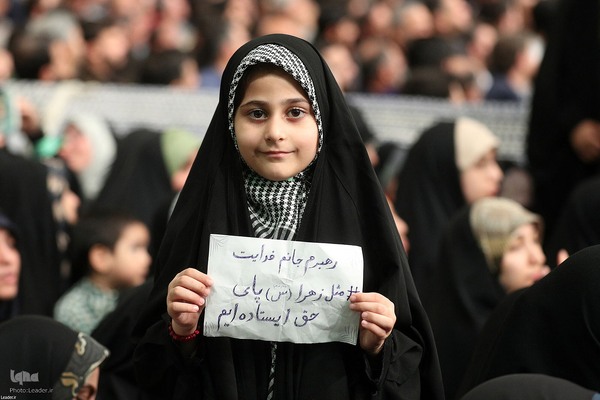 رهبرم جانم فدایت
#مثل زهرا (س) پای
حق ایستاده‌ایم
ایکنا
Photo:Leader.ir
Leader.ir